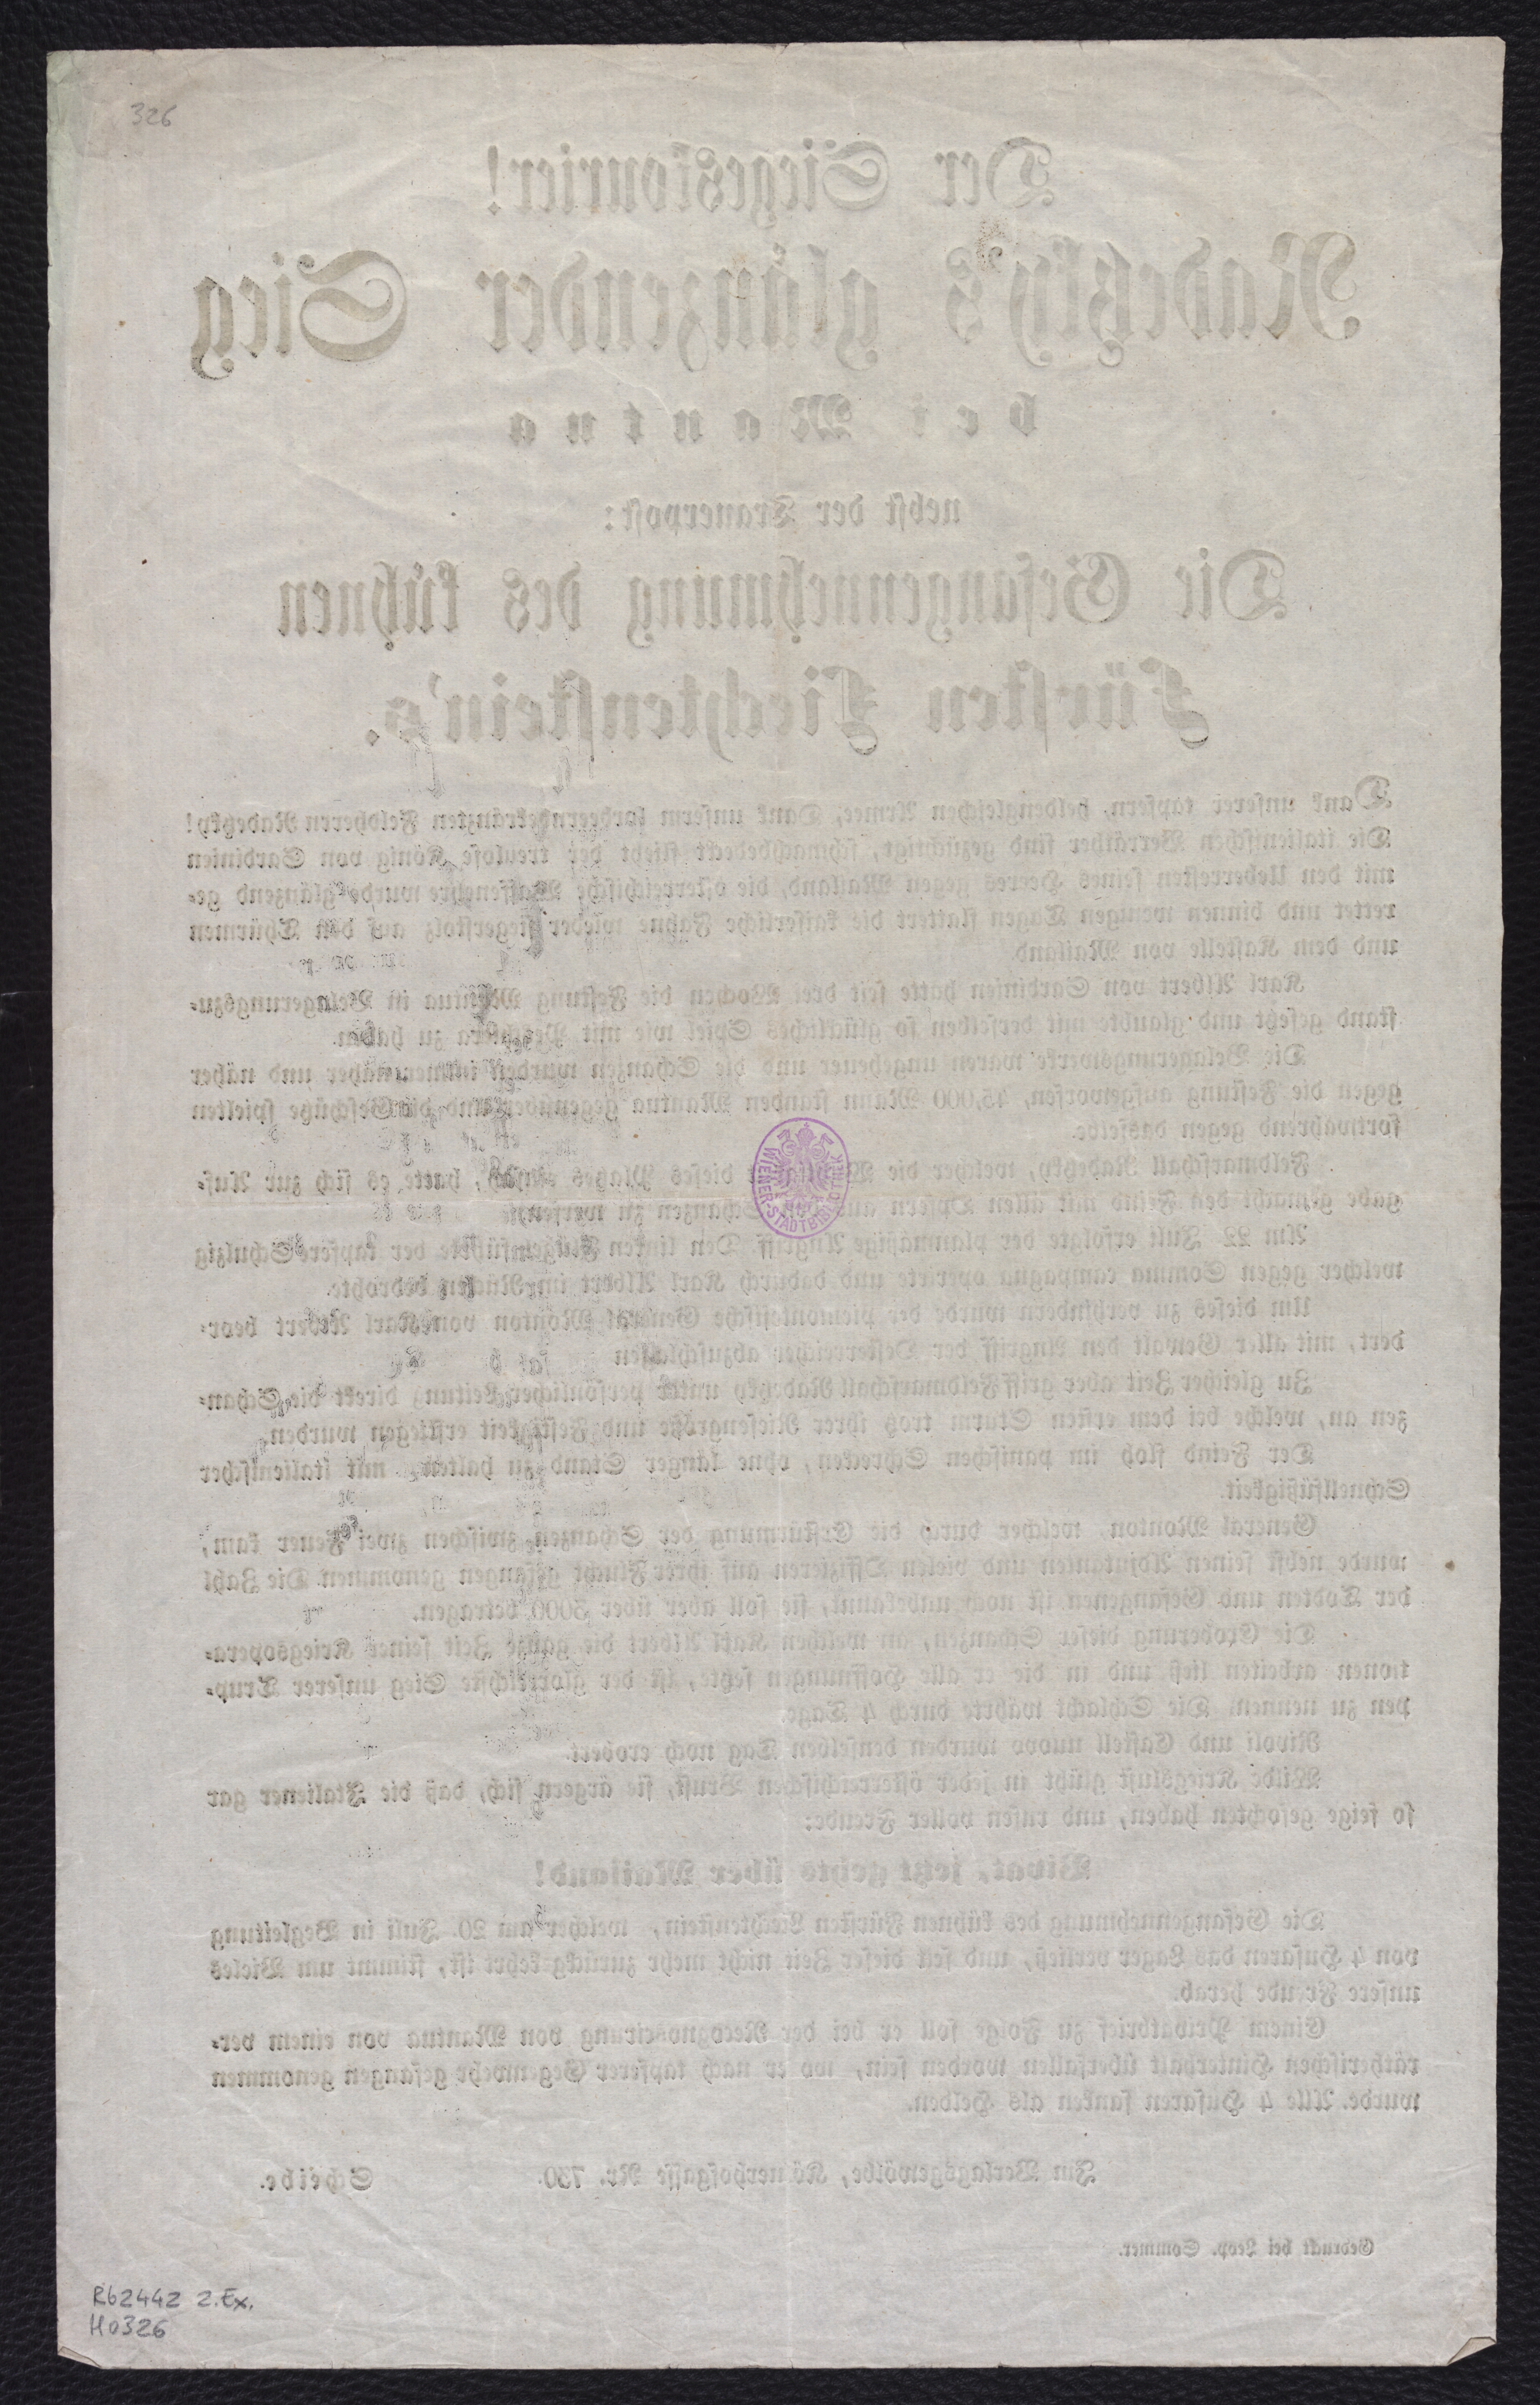 326
Der Siegeskourier!
Radetzky's glänzender Sieg
bei Mantua
nebst der Trauerpost:
Die Gefangennehmung des kühnen
Fürsten Liechtenstein's.
Dank unserer tapfern, heldengleichen Armee, Dank unserm lorbeerbekränzten Feldherrn Radetzky!
Die italienischen Verräther sind gezüchtigt, schmachbedeckt flieht der treulose König von Sardinien
mit den Ueberresten seines Heeres gegen Mailand, die österreichische Waffenehre wurde glänzend ge-
rettet und binnen wenigen Tagen flattert die kaiserliche Fahne wieder siegerstolz auf den Thürmen
und dem Kastelle von Mailand.
Karl Albert von Sardinien hatte seit drei Wochen die Festung Mantua in Belagerungszu-
stand gesetzt und glaubte mit derselben so glückliches Spiel wie mit Peschiera zu haben.
Die Belagerungswerke waren ungeheuer und die Schanzen wurden immer näher und näher
gegen die Festung aufgeworfen, 45,000 Mann standen Mantua gegenüber und die Geschütze spielten
fortwährend gegen dasselbe.
Feldmarschall Radetzky, welcher die Wichtigkeit dieses Platzes einsah, hatte es sich zur Auf-
gabe gemacht den Feind mit allen Opfern aus den Schanzen zu werfen.
Am 22 Juli erfolgte der planmäßige Angriff. Den linken Flügel führte der tapfere Schulzig
welcher gegen Comma campagna operirte und dadurch Karl Albert im Rücken bedrohte.
Um dieses zu verhindern wurde der piemontesische General Monton von Karl Albert beor-
dert, mit aller Gewalt den Angriff der Oesterreicher abzuschlagen
Zu gleicher Zeit aber griff Feldmarschall Radetzky unter persönlicher Leitung direkt die Schan-
zen an, welche bei dem ersten Sturm trotz ihrer Riesengröße und Festigkeit erstiegen wurden.
Der Feind floh im panischen Schrecken, ohne länger Stand zu halten, mit italienischer
Schnellfüßigkeit.
General Monton, welcher durch die Erstürmung der Schanzen zwischen zwei Feuer kam,
wurde nebst seinen Adjutanten und vielen Offizieren auf ihrer Flucht gefangen genommen. Die Zahl
der Todten und Gefangenen ist noch unbekannt, sie soll aber über 3000 betragen.
Die Eroberung dieser Schanzen, an welchen Karl Albert die ganze Zeit seiner Kriegsopera-
tionen arbeiten ließ und in die er alle Hoffnungen setzte, ist der glorreichste Sieg unserer Trup-
pen zu nennen. Die Schlacht währte durch 4 Tage.
Rivoli und Castell nuovo wurden denselben Tag noch erobert.
Wilde Kriegslust glüht in jeder österreichischen Brust, sie ärgern sich, daß die Italiener gar
so feige gefochten haben, und rufen voller Freude:
Vivat, jetzt gehts über Mailand!
Die Gefangennehmung des kühnen Fürsten Liechtenstein, welcher am 20. Juli in Begleitung
von 4 Husaren das Lager verließ, und seit dieser Zeit nicht mehr zurückgekehrt ist, stimmt um Vieles
unsere Freude herab.
Einem Privatbrief zu Folge soll er bei der Recognoscirung von Mantua von einem ver-
rätherischen Hinterhalt überfallen worden sein, wo er nach tapferer Gegenwehr gefangen genommen
wurde. Alle 4 Husaren sanken als Helden.
Im Verlagsgewölbe, Köllnerhofgasse Nr. 730. Scheibe.
Gedruckt bei Leop. Sommer.
WIENER STADTBIBLIOTHEK
R62442 2.Ex.
H0326